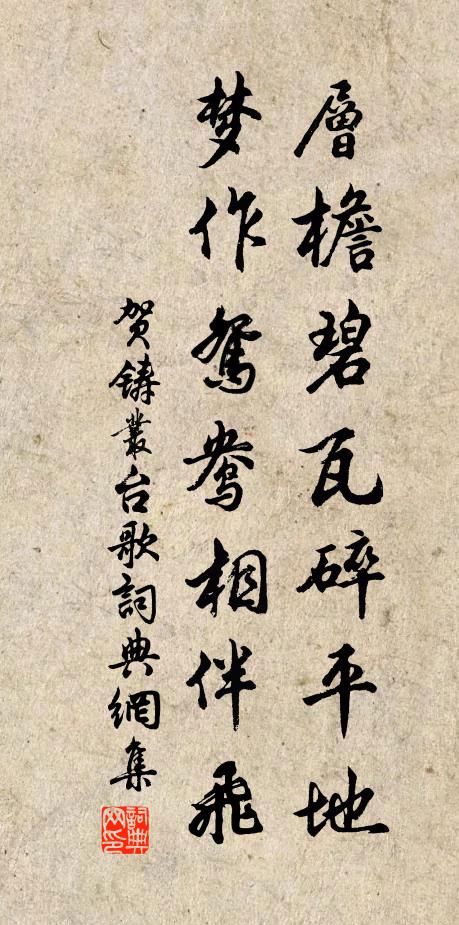 層檐碧瓦碎平地
梦作鴛鴦相伴飛
贺鑄叢台歌詞典網集
詞典网印